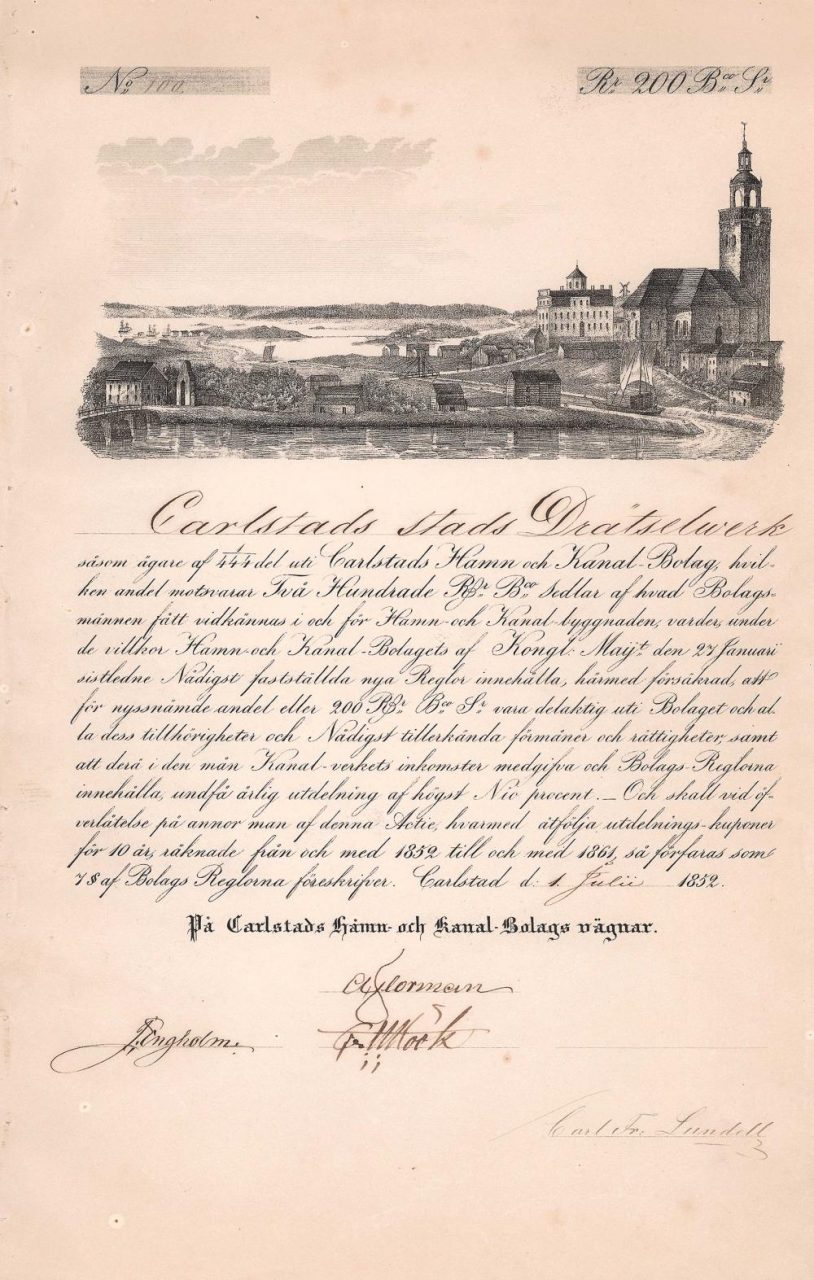 No 100.
Rr 200 Bco Sr
Carlstads stads Drätselwerk
såsom ägare af 1/444 del uti Carlstads Hamn och Kanal-Bolag, hvil-
ken andel motsvarar Två Hundrade Rdr Bco Sedlar af hvad Bolags-
männen fått vidkännas i och för Hamn- och Kanal-byggnaden, varder, under
de villkor Hamn- och Kanal-Bolagets af Kongl: Majt. den 27 Januari
sistledne Nådigst fastställda nya Reglor innehålla, härmed försäkrad, att
för nyssnämde andel eller 200 Rdr Bco Sr vara delaktig uti Bolaget och al-
la dess tillhörigheter och Nådigst tillerkända förmåner och rättigheter, samt
att derå i den mån Kanal-verkets inkomster medgifva och Bolags-Reglorna
innehålla, undfå årlig utdelning af högst Nio procent. — Och skall vid öf-
verlåtelse på annor man af denna Actie, hvarmed åtfölja utdelnings-kuponer
för 10 år, räknade från och med 1852 till och med 1861, så förfaras som
7 § af Bolags Reglorna föreskrifver. Carlstad d: 1 Julii 1852.
På Carlstads Hamn- och Kanal-Bolags vägnar.
Engholm.
Carl Fr. Lundell